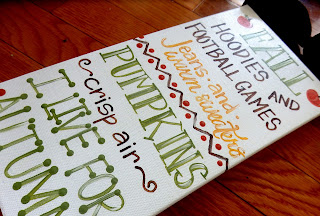 FALL
HOODIES AND
FOOTBALL GAMES
Jeans and
warm sweaters
PUMPKINS
crisp air
I LIVE FOR
AUTUMN